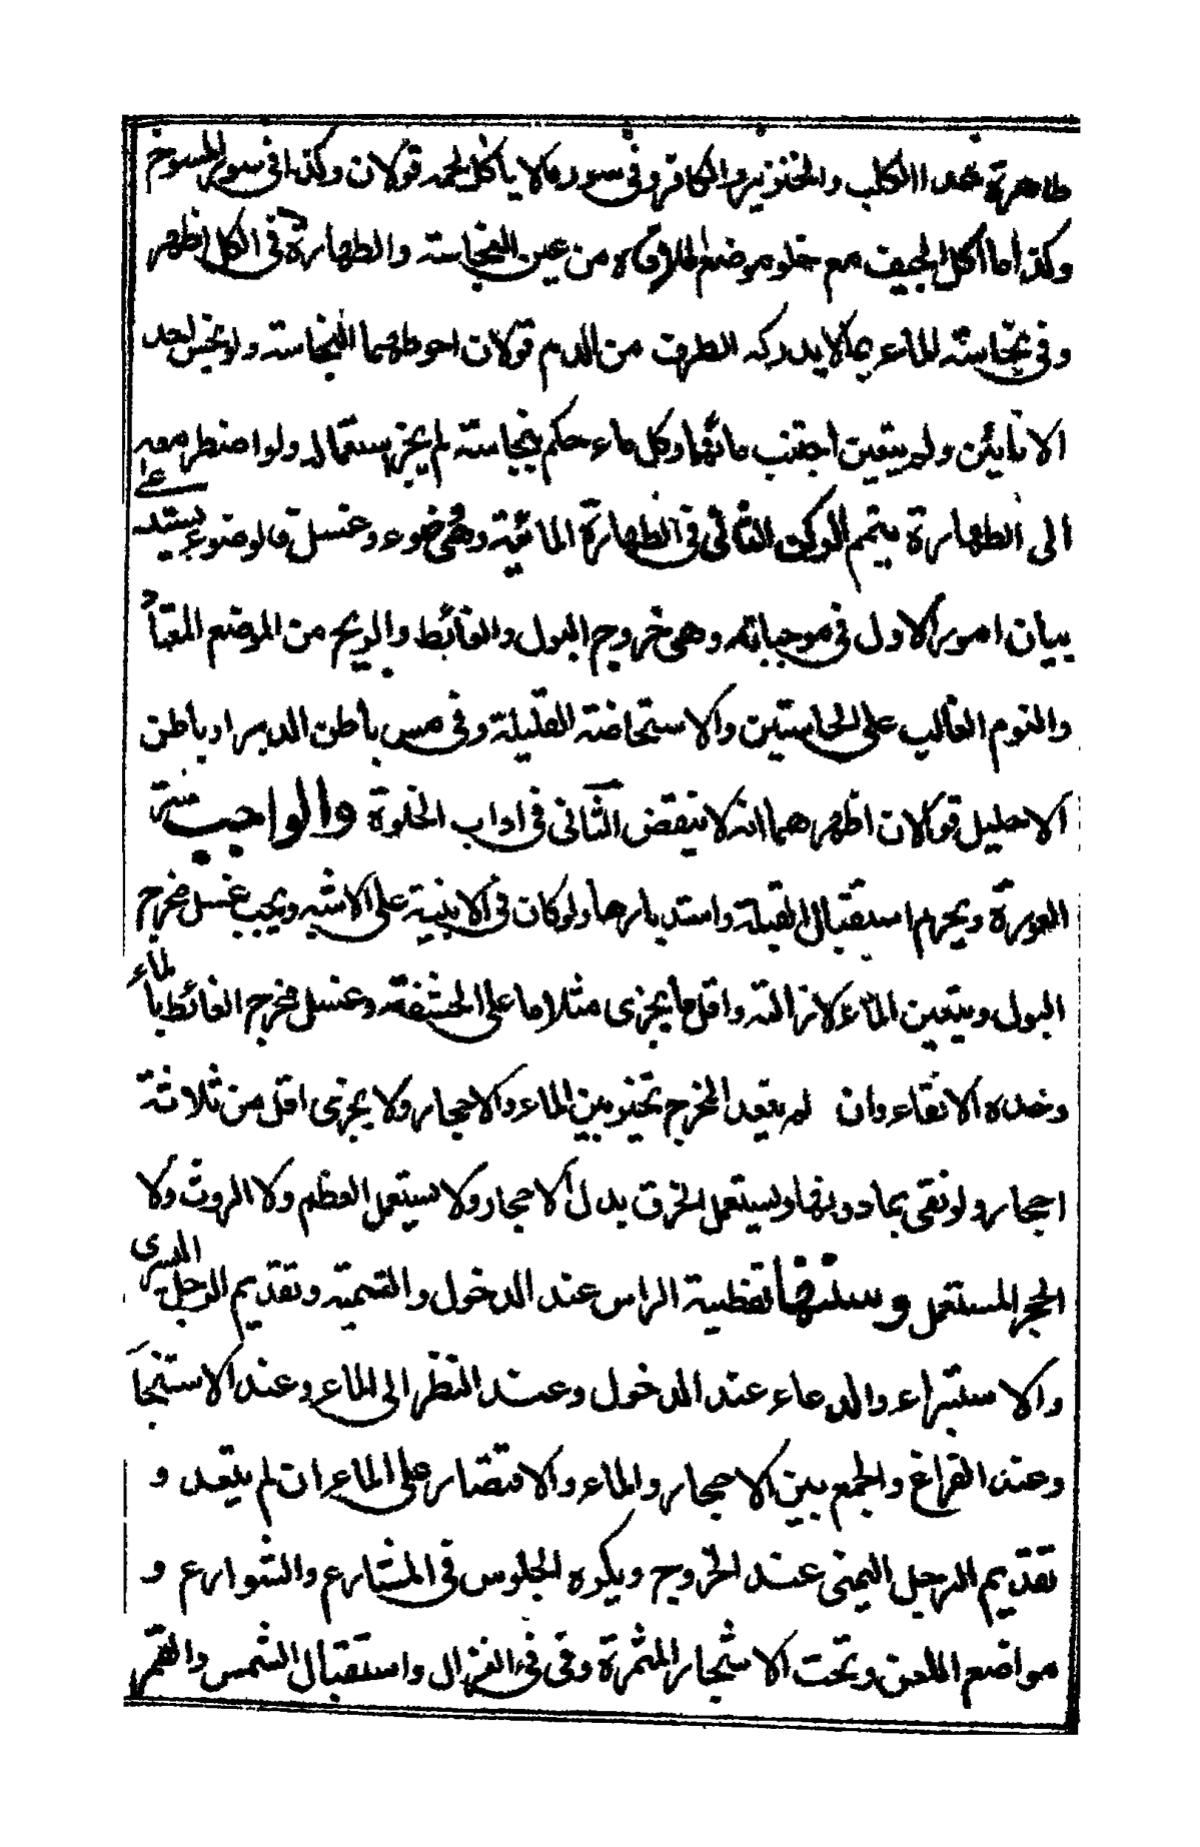 طاهرة عدا الكلب والخنزير والكافر وفى سور مالا يأكل لحمه قولان وكذا فى سور المسوخ
وكذا ما اكل الجيف مع خلو موضع الملاقاة من عين النجاسته والطهارة فى الكل اظهر
وفى نجاسته الماء بمالا يدركه الطرف من الدم قولان احوطهما النجاسته ولو نجس احد
الانائين ولم يتعين اجتنب مائهما وكل ماء حكم بنجاسته لم يجز استعماله ولو اضطر معه
الى الطهارة يتمم الركن الثانى فى الطهارة المائية وهى وضوء وغسل فالوضوء يستدعى
بيان امور الاول فى موجباته وهى خروج البول والغائط والريح من الموضع المعتاد
والنوم الغالب على الحاستين والاستحاضة القليلة وفى مس باطن الدبر او باطن
الاحليل قولان اظهرهما انه لا ينقض الثانى فى اداب الخلوة والواجب ستر
العورة ويحرم استقبال القبلة واستدبارها ولو كان فى الابنية على الاشبه ويجب غسل مخرج
البول ويتعين الماء لازالته واقل ما يجزى مثلا ما على الحشفة وغسل مخرج الغائط بالماء
وحده الانقاء وان لم يتعد المخرج تخير بين الماء والاحجار ولا يجزى اقل من ثلاثة
احجار ولو نقى بما دونها ويستعمل الخرق بدل الاحجار ولا يستعمل العظم ولا الروث ولا
الحجر المستعمل وسننها تغطية الراس عند الدخول والتسمية وتقديم الرجل اليسرى
والاستبراء والدعاء عند الدخول وعند النظر الى الماء وعند الاستنجا
وعند الفراغ والجمع بين الاحجار والماء والاقتصار على الماء ان لم يتعد و
تقديم الرجل اليمنى عند الخروج ويكره الجلوس فى المشارع والشوارع و
مواضع اللعن وتحت الاشجار المثمرة وفى فىء النزال واستقبال الشمس والقمر